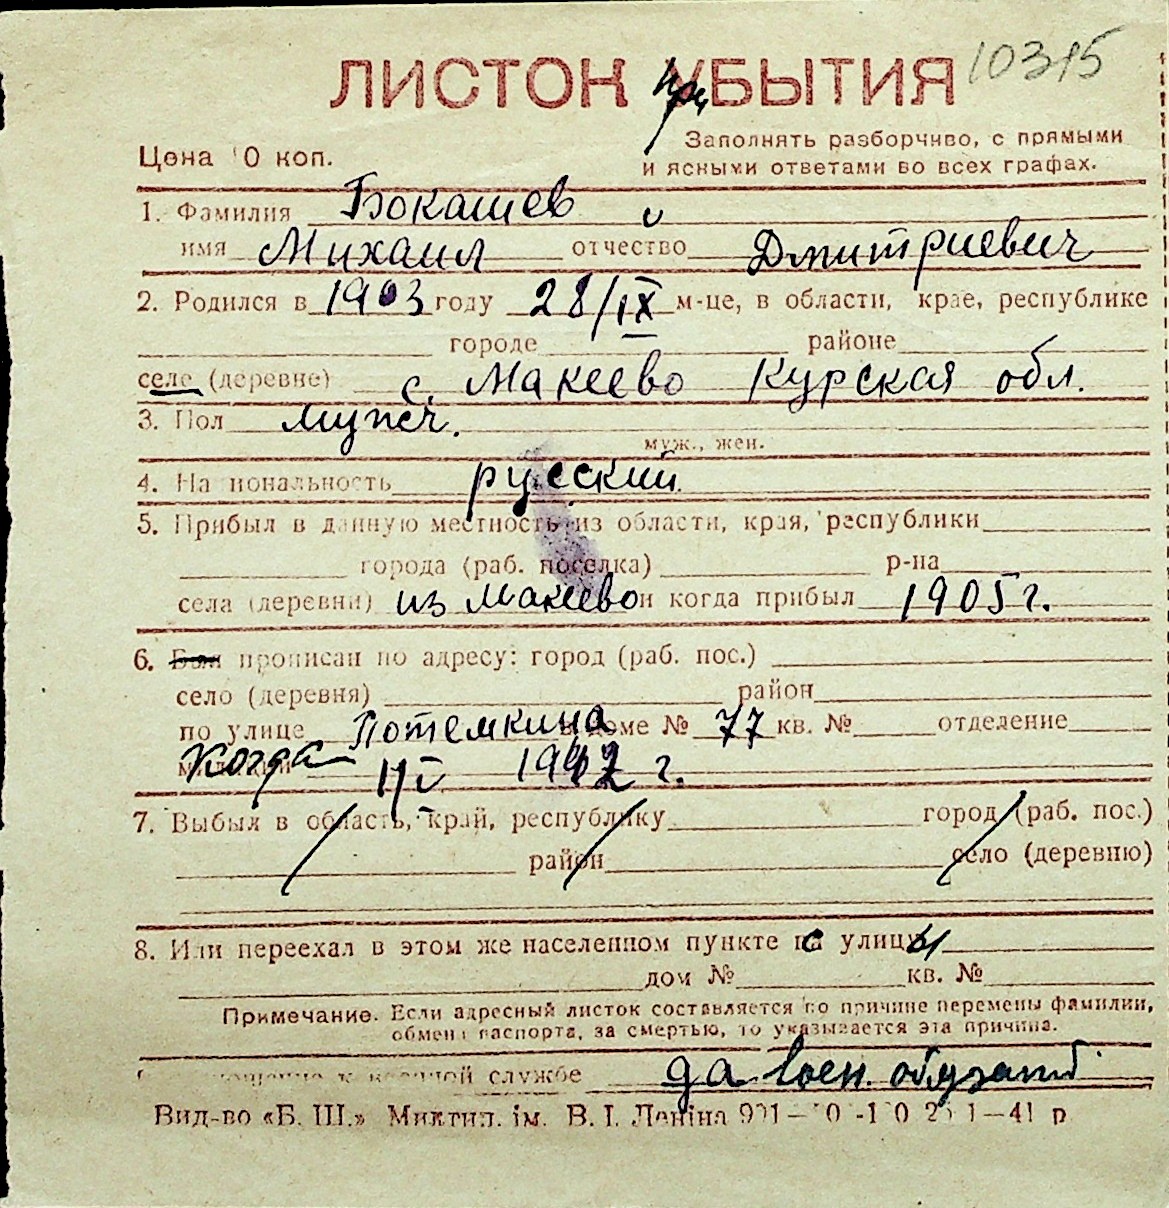 ЛИСТОК УБЫТИЯ 10315
при
Цена 10 коп.
Заполнять разборчиво, с прямыми
и ясными ответами во всех графах.
1. Фамилия Бокашев
имя Михаил отчество Дмитриевич
2. Родился в 1903 году 28/IX м-це, в области, крае, республике
городе районе
селе (деревне) с. Макеево Курская обл.
3. Пол мужч.
муж., жен.
4. Национальность русский
5. Прибыл в данную местность из области, края, республики
города (раб. поселка) р-на
села (деревни) из Макеево и когда прибыл 1905 г.
6. Был прописан по адресу: город (раб. пос.)
село (деревня) район
по улице Потемкина в доме № 77 кв. № отделение
милиции Когда 1942 г.
7. Выбыл в область, край, республику город (раб. пос.)
район село (деревню)
8. Или переехал в этом же населенном пункте с улицы
дом № кв. №
Примечание. Если адресный листок составляется по причине перемены фамилии,
обмена паспорта, за смертью, то указывается эта причина.
к военной службе да воен. обязаный
Вид-во «Б. Ш.» Миктип. ім. В. І. Леніна